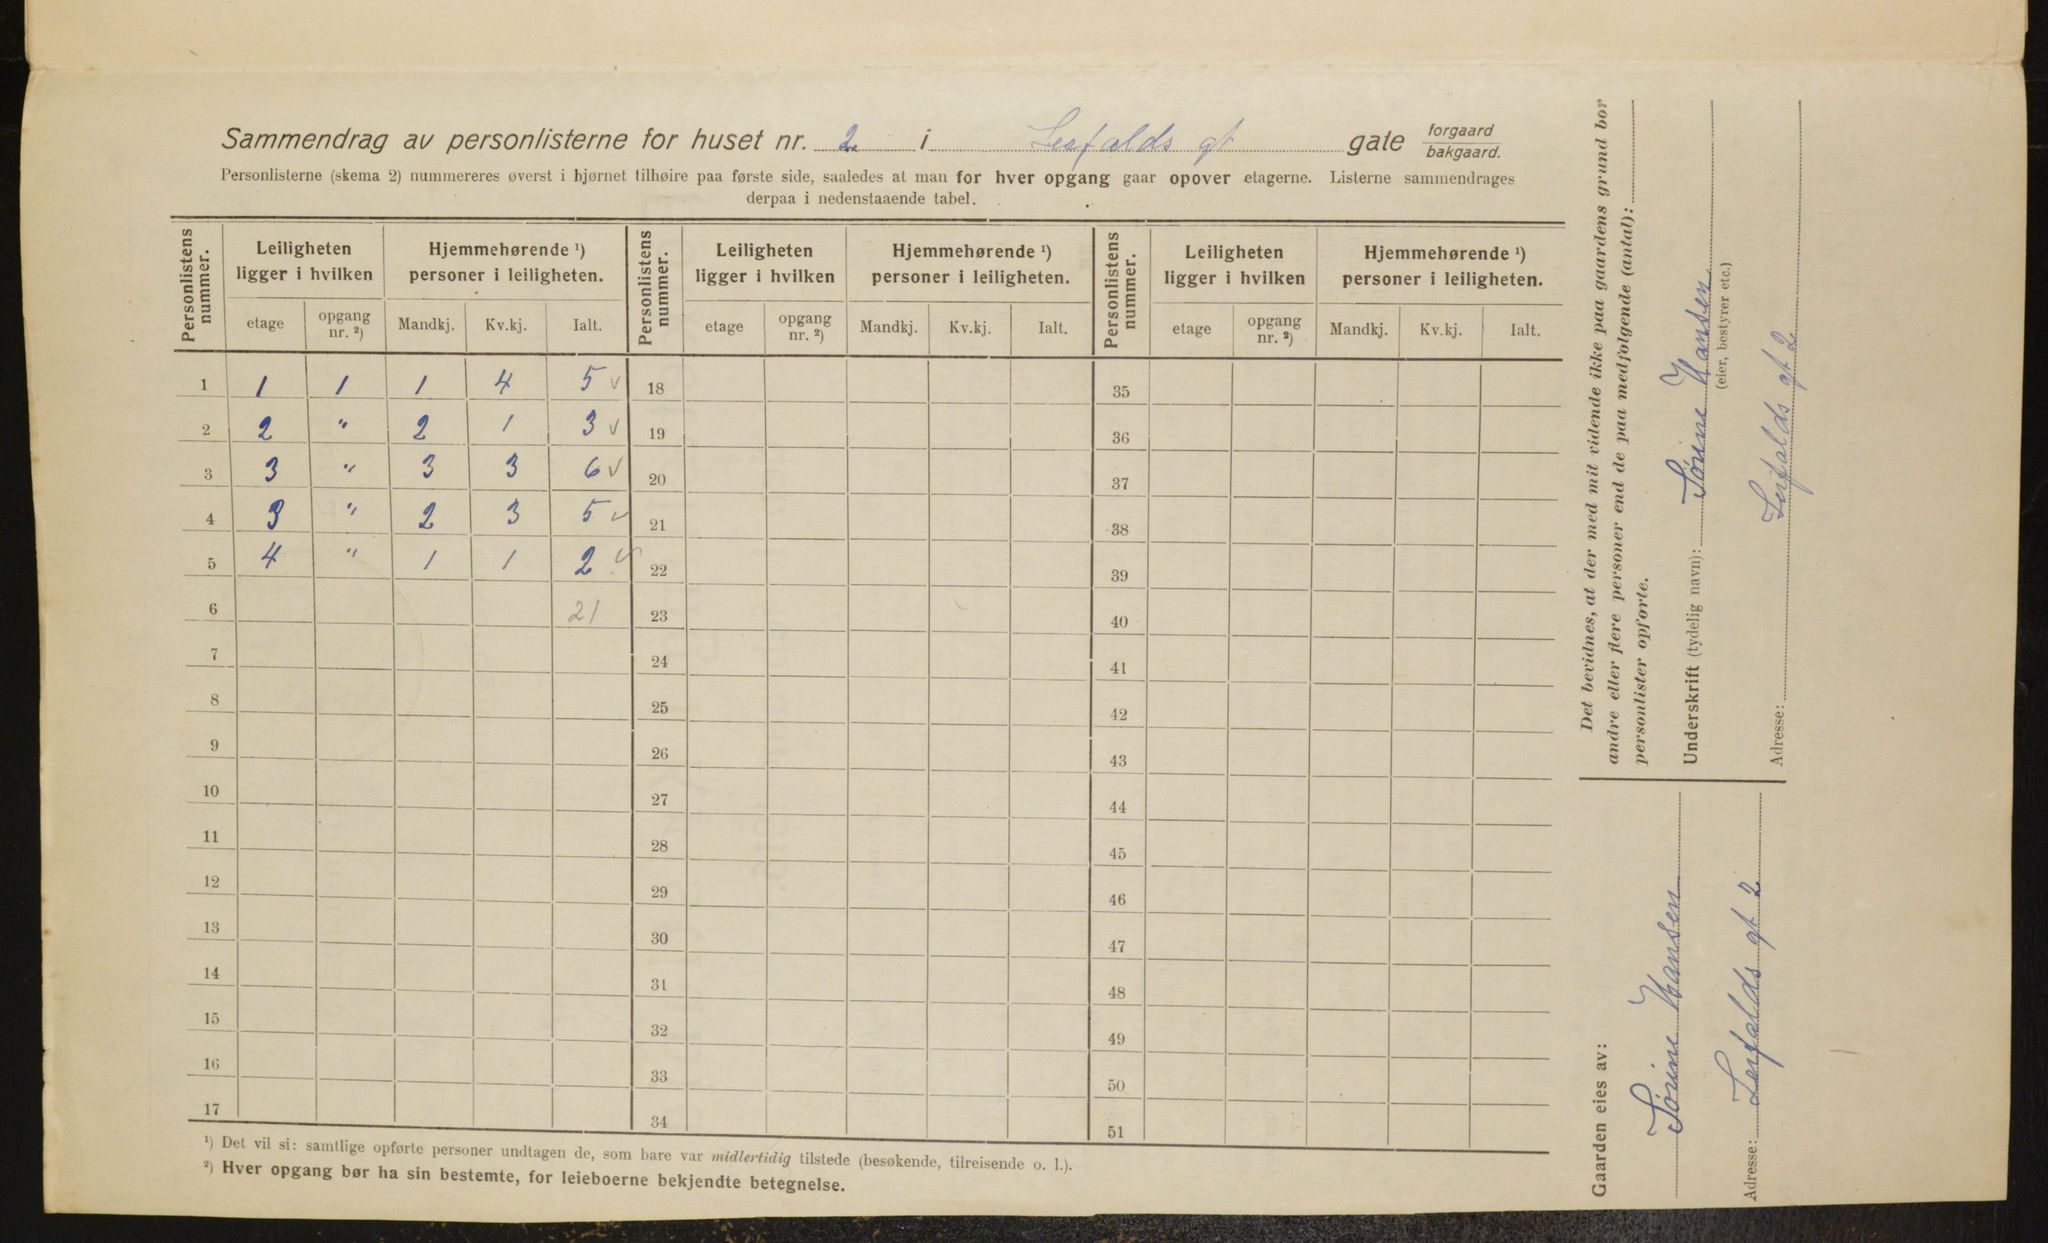 Sammendrag av personlisterne for huset nr. 2 i Leifalds gt gate forgaard
bakgaard.
Personlisterne (skema 2) nummereres øverst i hjørnet tilhøire paa første side, saaledes at man for hver opgang gaar opover etagerne. Listerne sammendrages
derpaa i nedenstaaende tabel.
Personlistens nummer. Leiligheten ligger i hvilken Hjemmehørende ¹) personer i leiligheten. Personlistens nummer. Leiligheten ligger i hvilken Hjemmehørende ¹) personer i leiligheten. Personlistens nummer. Leiligheten ligger i hvilken Hjemmehørende ¹) personer i leiligheten.
etage opgang nr. ²) Mandkj. Kv.kj. Ialt. etage opgang nr. ²) Mandkj. Kv.kj. Ialt. etage opgang nr. ²) Mandkj. Kv.kj. Ialt.
1 1 1 1 4 5 ✓ 18 35
2 2 " 2 1 3 ✓ 19 36
3 3 " 3 3 6 ✓ 20 37
4 3 " 2 3 5 ✓ 21 38
5 4 " 1 1 2 ✓ 22 39
6 21 23 40
7 24 41
8 25 42
9 26 43
10 27 44
11 28 45
12 29 46
13 30 47
14 31 48
15 32 49
16 33 50
17 34 51
¹) Det vil si: samtlige opførte personer undtagen de, som bare var midlertidig tilstede (besøkende, tilreisende o. l.).
²) Hver opgang bør ha sin bestemte, for leieboerne bekjendte betegnelse.
Det bevidnes, at der med mit vidende ikke paa gaardens grund bor
andre eller flere personer end de paa medfølgende (antal):
personlister opførte.
Underskrift (tydelig navn): Sørine Hansen
(eier, bestyrer etc.)
Adresse: Leifalds gt 2
Gaarden eies av:
Sørine Hansen
Adresse: Leifalds gt 2